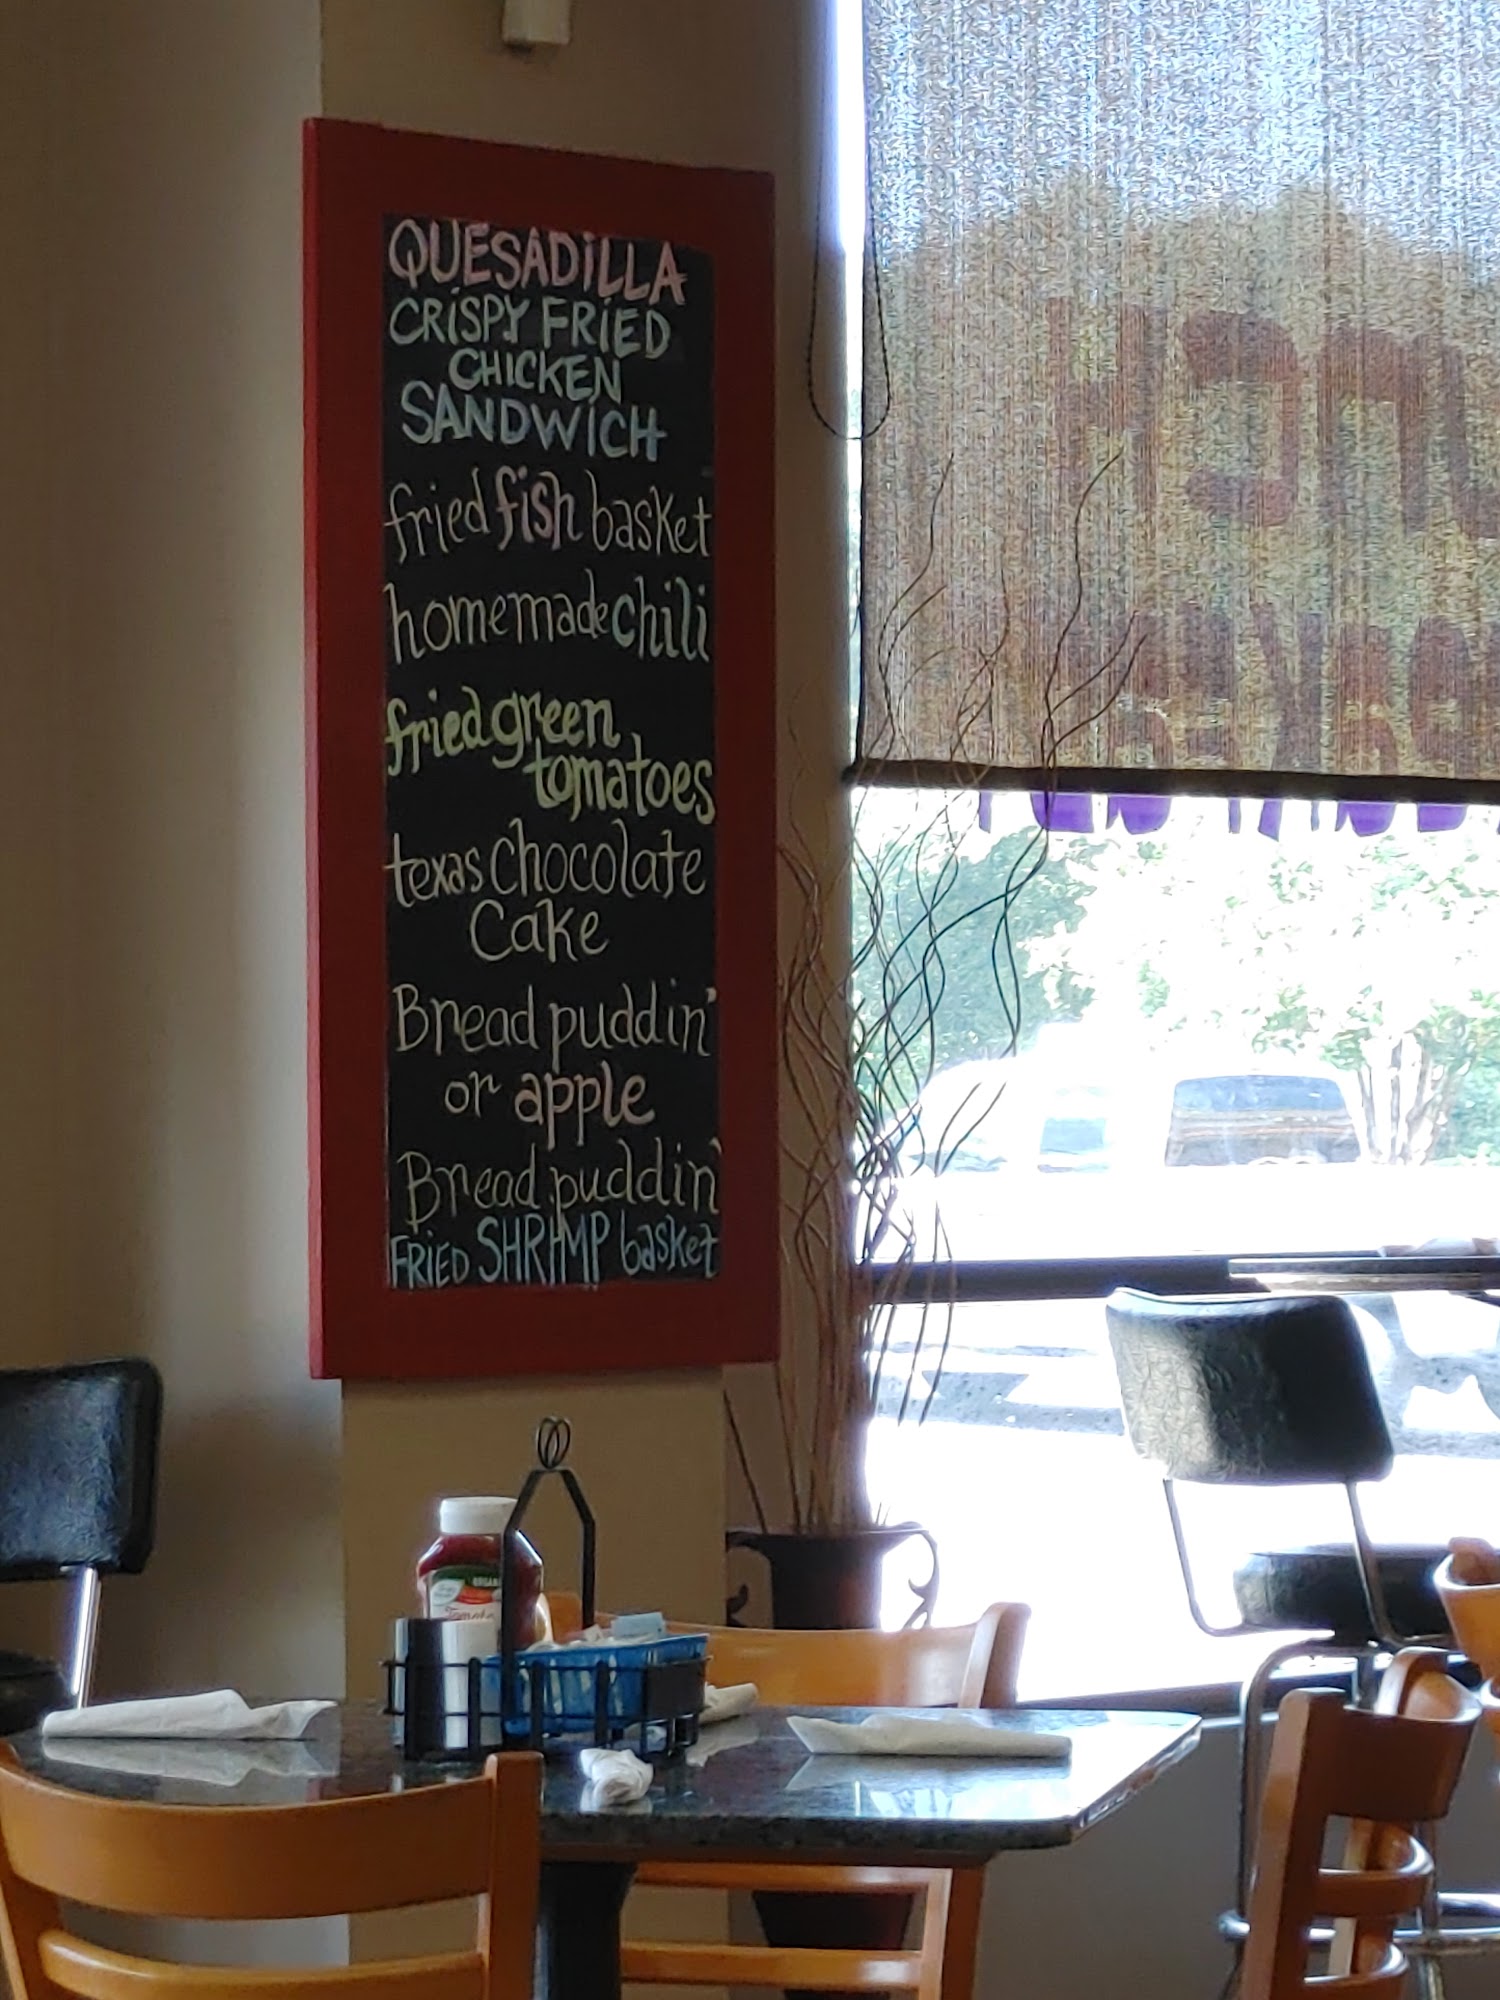 QUESADiLLA
CRiSPY FRiED
CHICKEN
SANDWiCH
fried fish basket
homemade chili
fried green
tomatoes
texas Chocolate
Cake
Bread puddin'
or apple
Bread puddin'
FRiED SHRIMP basket